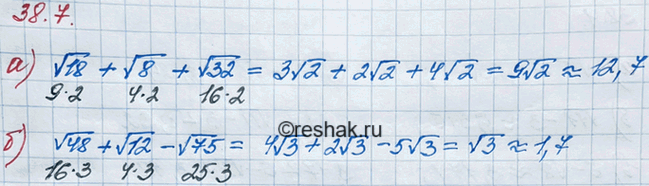 38.7.
а) √18 + √8 + √32 = 3√2 + 2√2 + 4√2 = 9√2 ≈ 12,7
9·2 4·2 16·2
©reshak.ru
б) √48 + √12 - √75 = 4√3 + 2√3 - 5√3 = √3 ≈ 1,7
16·3 4·3 25·3